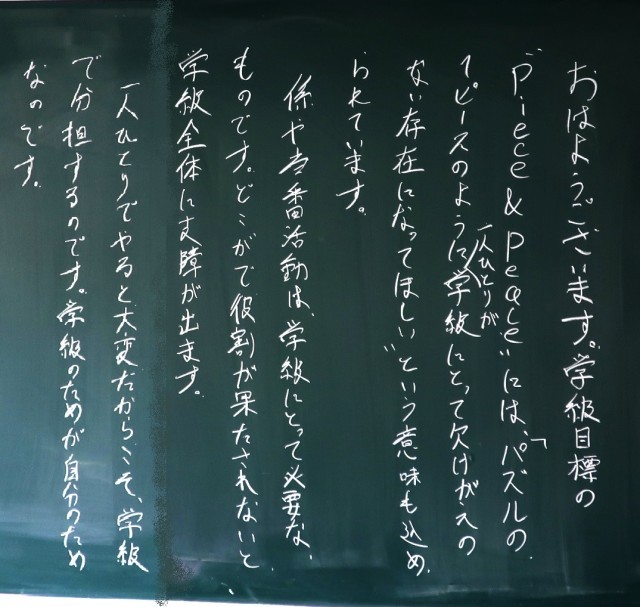 おはようございます。学級目標の
"Piece & Peace"には、「パズルの
1ピースのように一人ひとりが学級にとって欠けがえの
ない存在になってほしい"という意味も込め
られています。
係や当番活動は、学級にとって必要な
ものです。どこがで役割が果たされないと、
学級全体に支障が出ます。
一人ひとりでやると大変だからこそ、学級
で分担するのです。学級のためが自分のため
なのです。